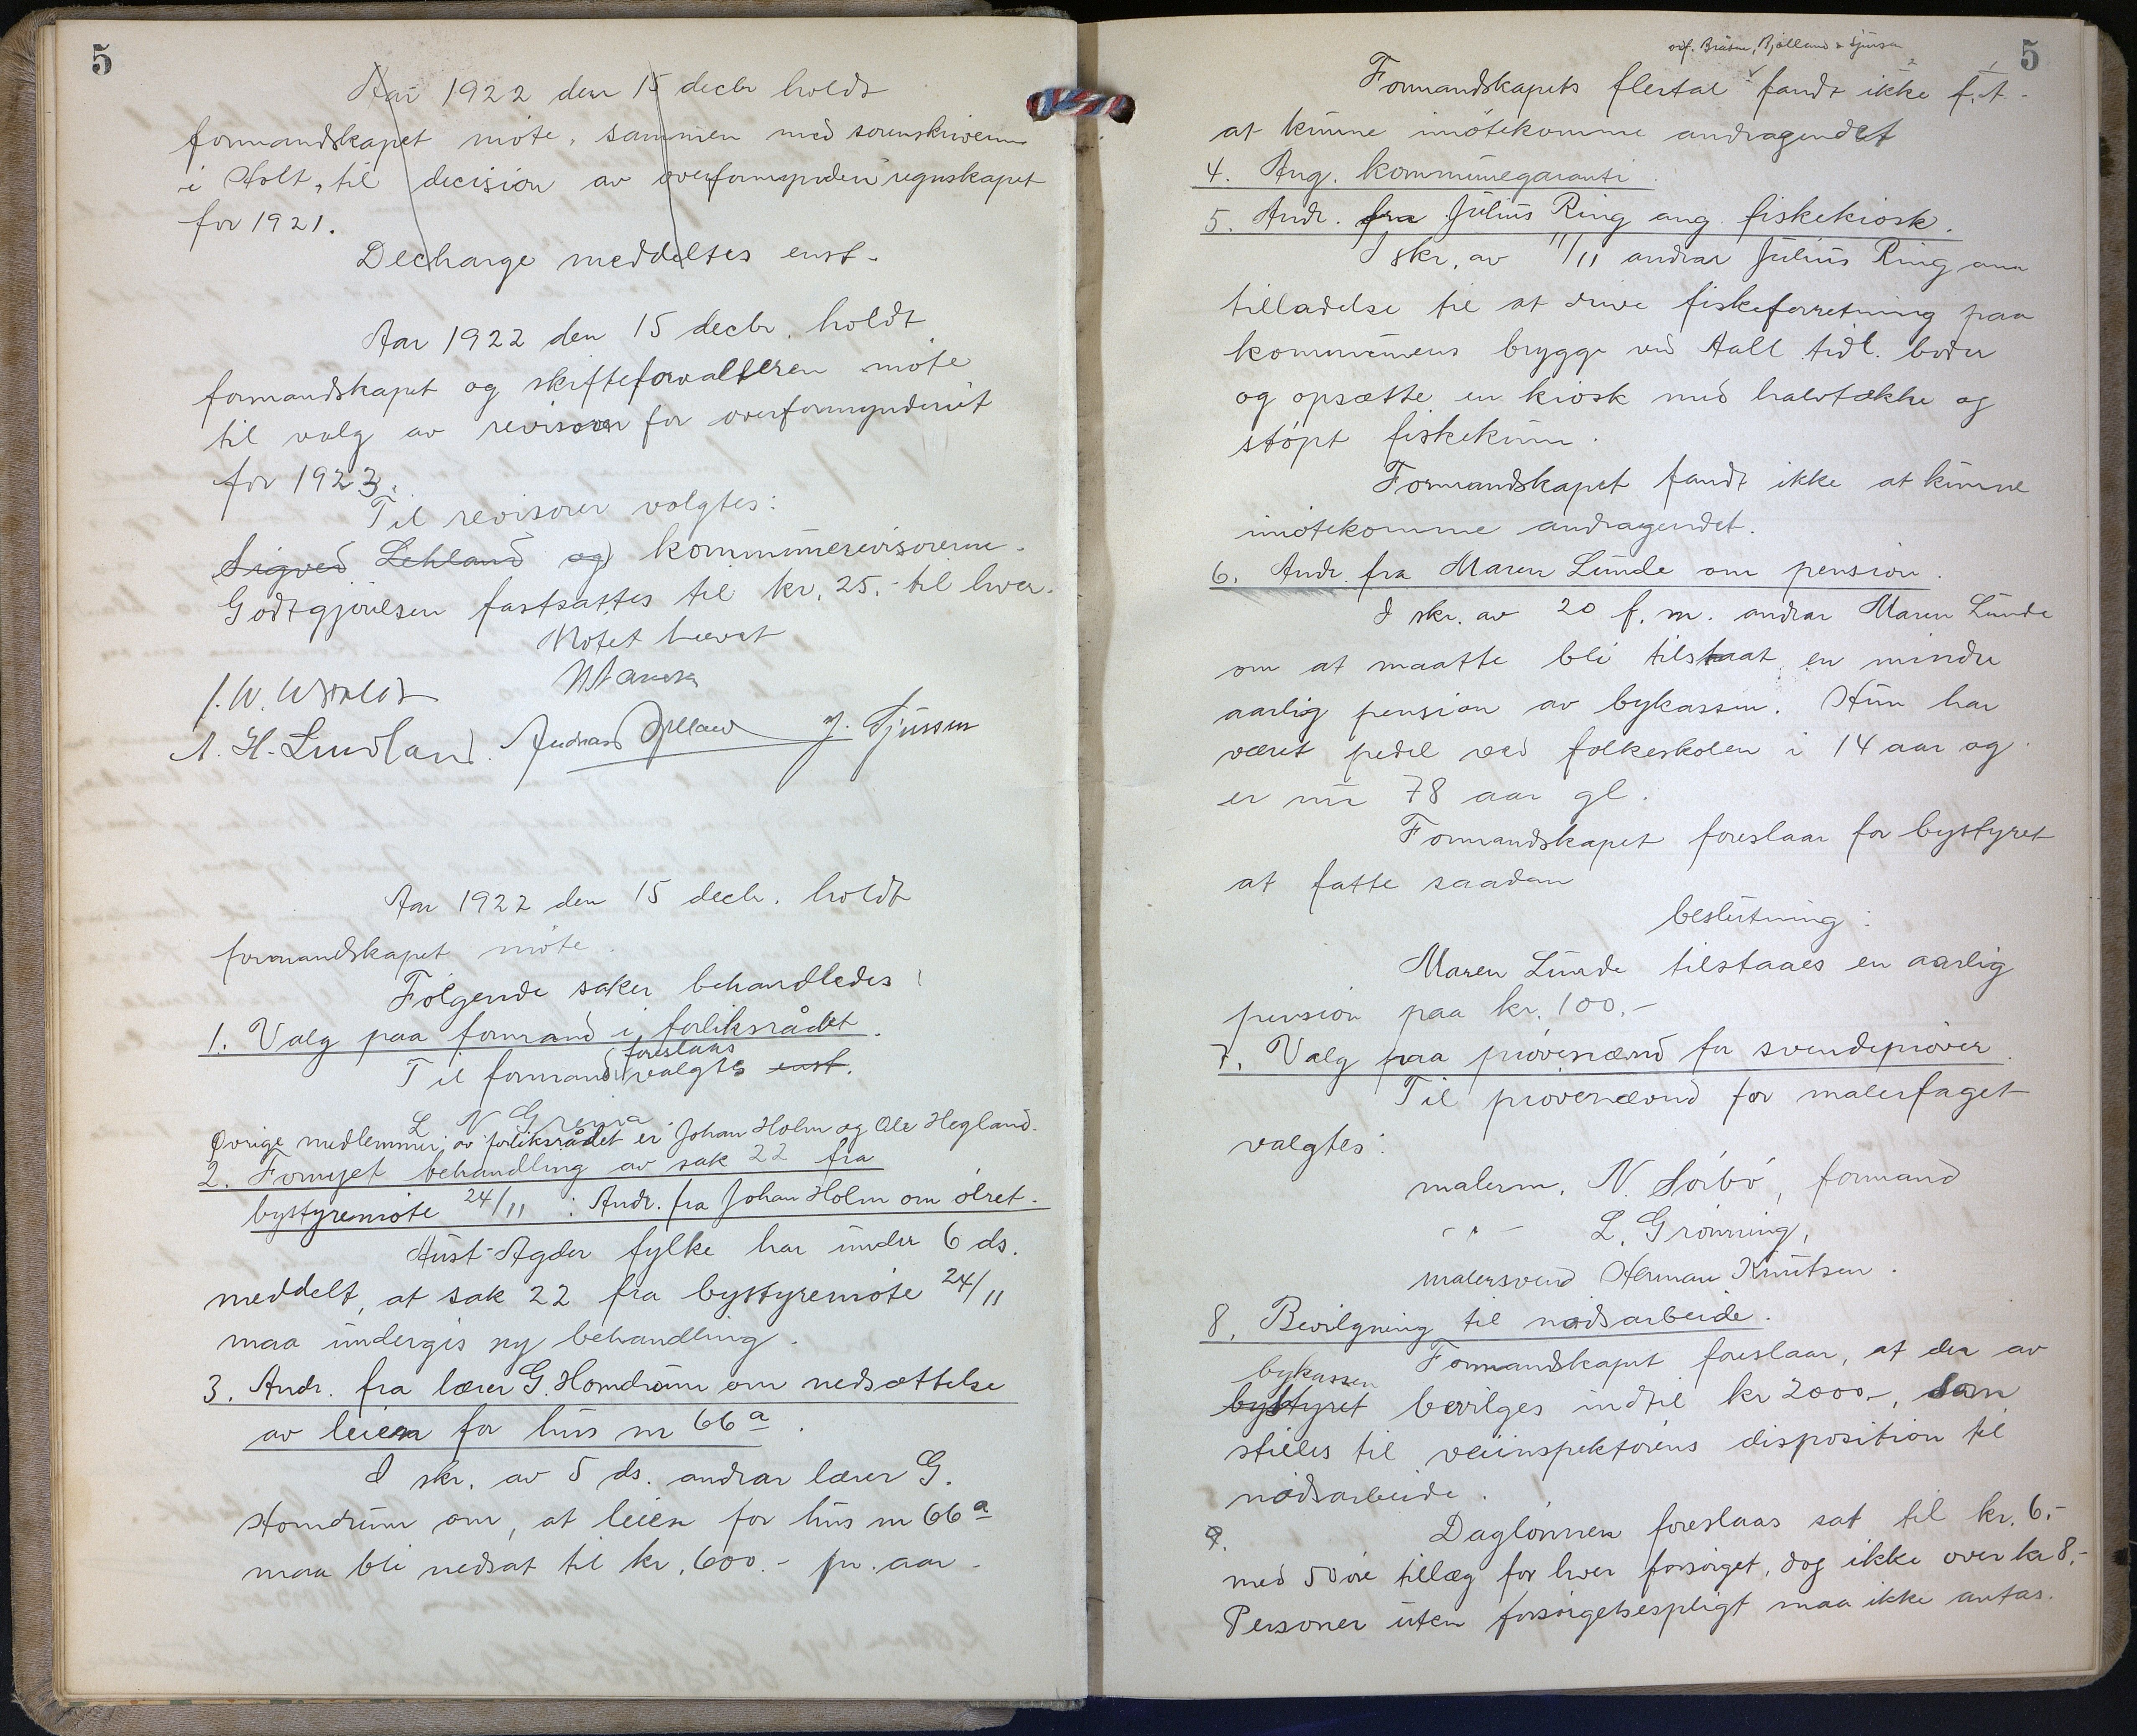 5
Aar 1922 den 15 decbr holdt
formandskapet møte, sammen med sorenskriveren
i Holt, til decision av overformynderiregnskapet
for 1921.
Decharge meddeltes enst.
Aar 1922 den 15 decbr. holdt
formandskapet og skifteforvalteren møte
til valg av revisorer for overformynderiet
for 1923.
Til revisorer valgtes:
Sigved Lehland og kommunerevisorerne.
Godtgjørelsen fastsattes til kr. 25.- til hver.
Møtet hævet
J. W.
A. H. Lindland. Andreas J. Tjussem
Aar 1922 den 15 decbr. holdt
formandskapet møte.
Følgende saker behandledes:
1. Valg paa formand i forliksrådet.
foreslaas
Til formand valgtes enst.
L N Greira
Øvrige medlemmer av forliksrådet er Johan Holm og Ole Hegland.
2. Fornyet behandling av sak 22 fra
bystyremøte 24/11: Andr. fra Johan Holm om ølret.
Aust-Agder fylke har under 6 ds.
meddelt, at sak 22 fra bystyremøte 24/11
maa undergis ny behandling.
3. Andr. fra lærer G. Homdrum om nedsættelse
av leien for hus nr 66a.
I skr. av 5 ds. andrar lærer G.
Homdrum om, at leien for hus nr 66a
maa bli nedsat til kr. 600.- pr. aar.
5
Formandskapets flertal fandt ikke f.t.
at kunne imøtekomme andragendet
4. Ang. kommunegaranti.
5. Andr. fra Julius Ring ang. fiskekiosk.
I skr. av 11/11 andrar Julius Ring om
tilladelse til at drive fiskeforretning paa
kommunens brygge ved Aall tidl. boder
og opsætte en kiosk med halvtække og
støpt fiskekum.
Formandskapet fandt ikke at kunne
imøtekomme andragendet.
6. Andr. fra Maren Lunde om pension.
I skr. av 20 f. m. andrar Maren Lunde
om at maatte bli tilstaat en mindre
aarlig pension av bykassen. Hun har
været pedel ved folkeskolen i 14 aar og
er nu 78 aar gl.
Formandskapet foreslaar for bystyret
at fatte saadan
beslutning:
Maren Lunde tilstaaes en aarlig
pension paa kr. 100.-
7. Valg paa prøvenævnd for svendeprøver.
Til prøvenævnd for malerfaget
valgtes:
malerm. N. Sørbø, formand
- " - L. Grønning,
malersvend Herman Knutsen.
8. Bevilgning til nødsarbeide.
Formandskapet foreslaar, at der av
bykassen
bystyret bevilges indtil kr 2000.-, som
stilles til veiinspektørens disposition til
nødsarbeide.
9. Daglønnen foreslaas sat til kr. 6.-
med 50 øre tillæg for hver forsørget, dog ikke over kr 8.-
Personer uten forsørgelsespligt maa ikke antas.